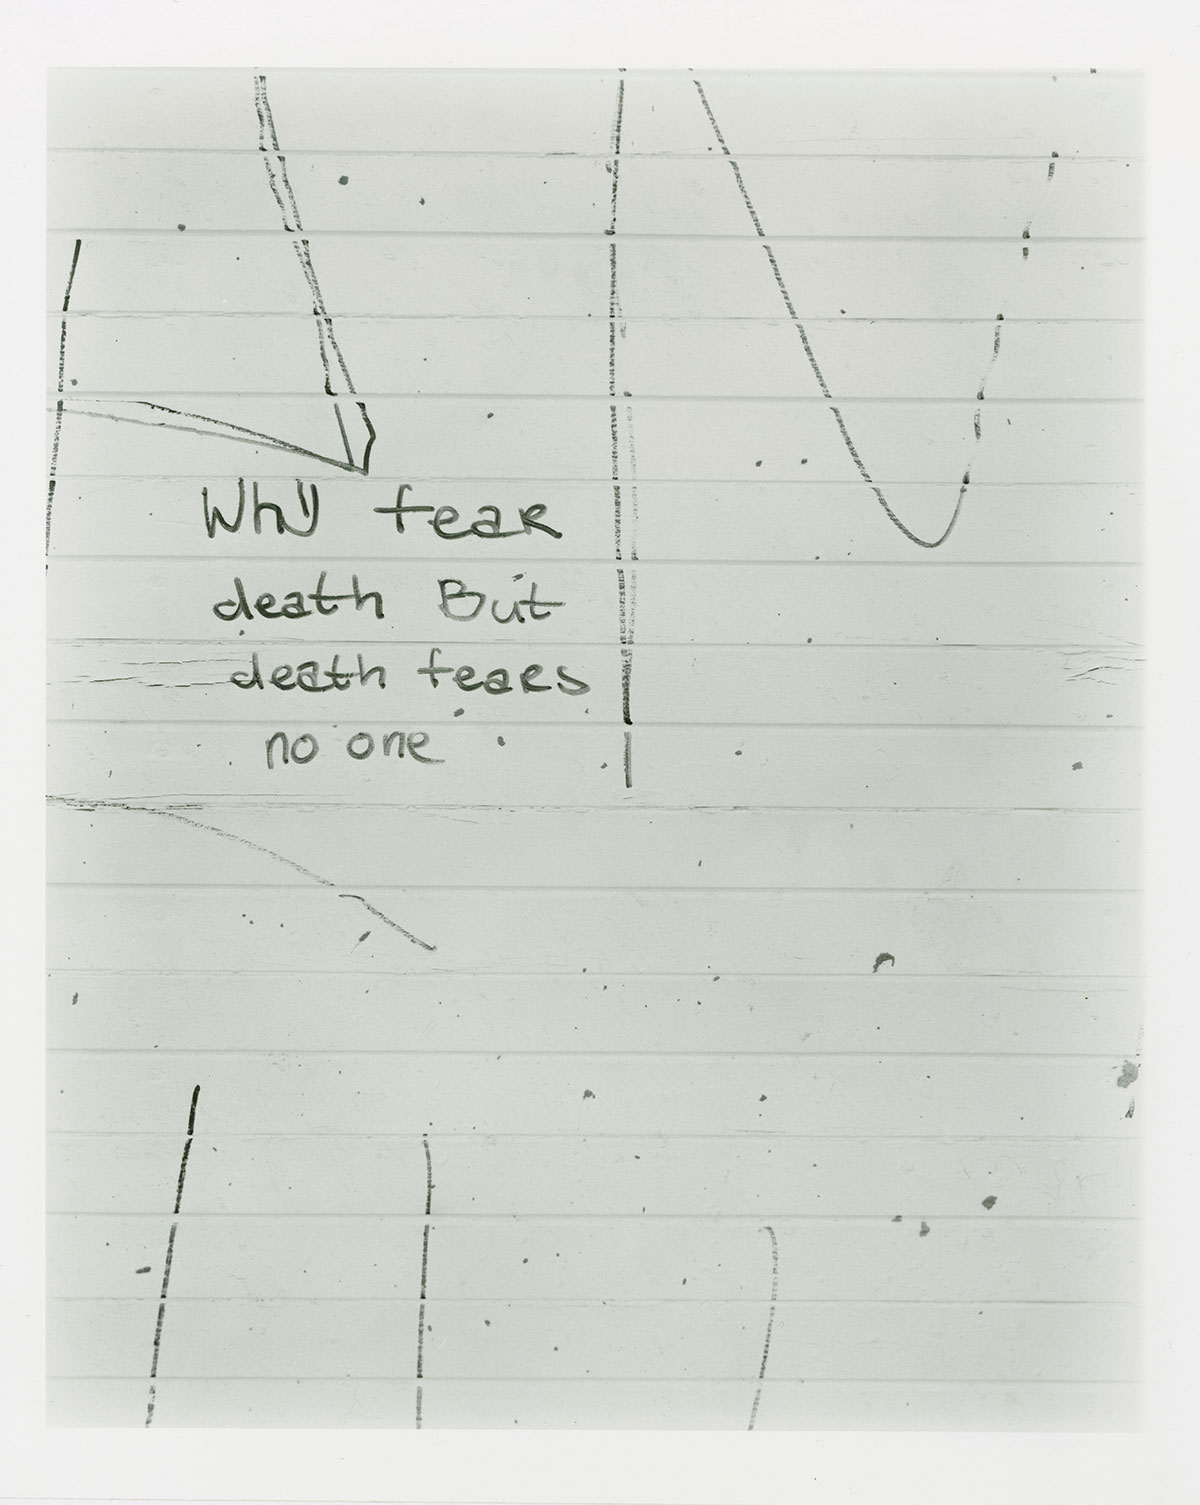 Why fear
death But
death fears
no one